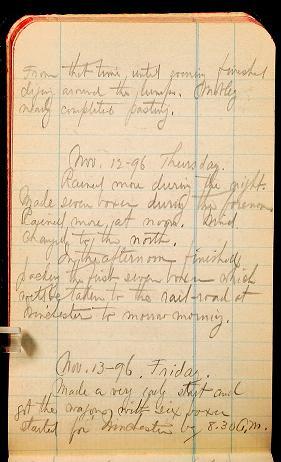 From that time, until evening finished
digging around the lumps. Motley
nearly completed pasting.
Nov. 12-96 Thursday.
Rained more during the night.
Made seven boxes during the forenoon.
Rained more at noon. Wind
changed to the north.
In the afternoon finished
packing the first seven boxes which
will be taken to the rail-road at
Winchester to morrow morning.
Nov. 13-96. Friday.
Made a very early start and
got the wagons with six boxes
started for Winchester by 8.30 A.M.